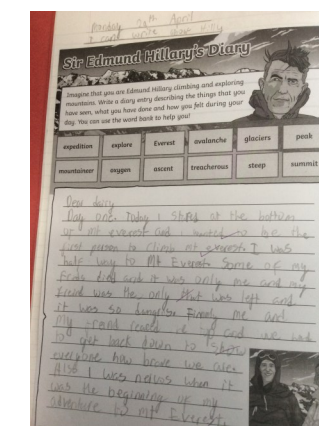 Monday 29th April
I can write about Hillary
Sir Edmund Hillary's Diary
Imagine that you are Edmund Hillary climbing and exploring
mountains. Write a diary entry describing the things that you
have seen, what you have done and how you felt during your
day. You can use the word bank to help you!
expedition explore Everest avalanche glaciers peak
mountaineer oxygen ascent treacherous steep summit
Dear dairy
Day one, Today I at the bottom
of mt everest and I wanted to be the
first person to climb mt everest. I was
half way to Mt Everest Some of my
died and it was only me and my
friend was the only that was left and
it was so me and
my it and we had
to get back down to
everyone how brave we are.
Also I was nervos when it
was the beginning of my
adventure to mt Everest.